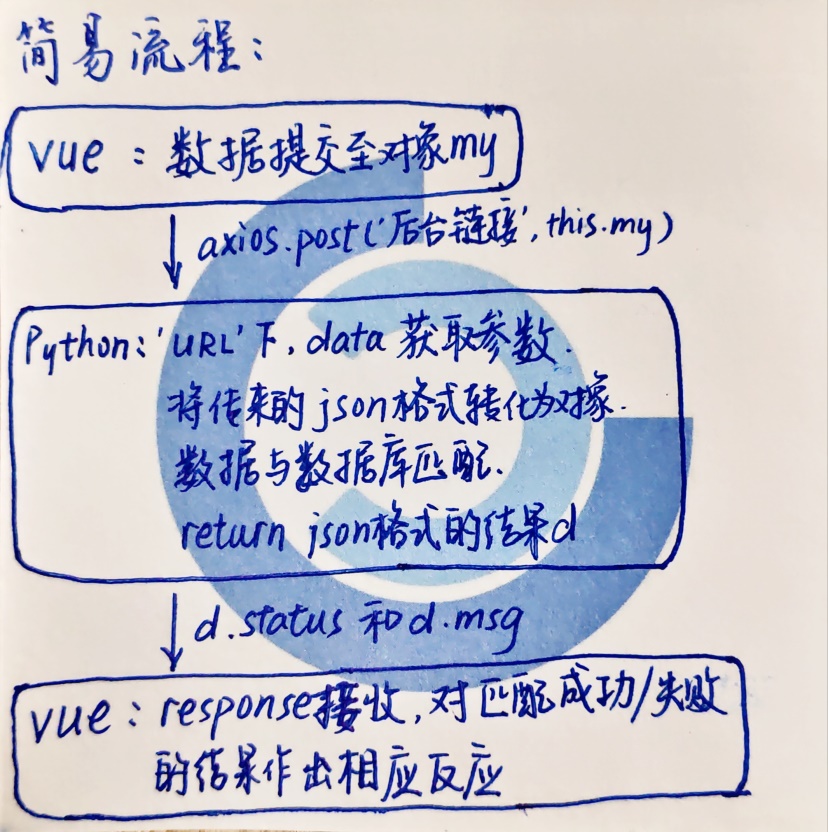 简易流程:
vue:数据提交至对象my
axios.post('后台链接',this.my)
Python:'URL'下,data 获取参数.
将传来的json格式转化为对象.
数据与数据库匹配.
return json格式的结果d
d.status 和 d.msg
vue:response接收,对匹配成功/失败
的结果作出相应反应